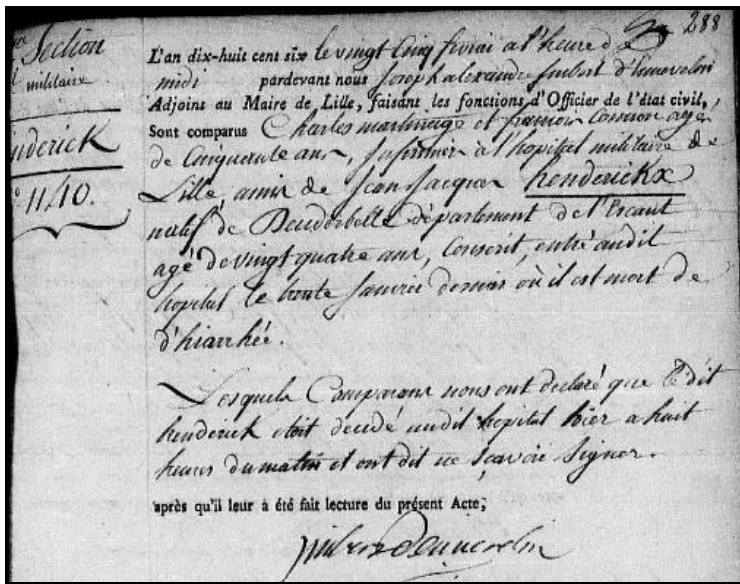 288
Section
militaire
nderick
1140.
L'an dix-huit cent six le vingt cinq fevrai a l'heure de
midi pardevant nous Joseph alexandre
Adjoint au Maire de Lille, faisant les fonctions d'Officier de l'état civil,
Sont comparus Charles et françois agés
de Cinquante ans, Infirmier à l'hopital militaire de
Lille amis de Jean Jacques henderickx
natif de département de l'Escaut
agé de vingt quatre ans, Conscrit, entré audit
hopital le trente Janvier dernier où il est mort de
d'hiarrhée.
Lesquels Comparans nous ont declaré que le dit
henderick etoit décédé audit hopital hier a huit
heures du matin et ont dit ne scavoir signer.
après qu'il leur à été fait lecture du présent Acte,